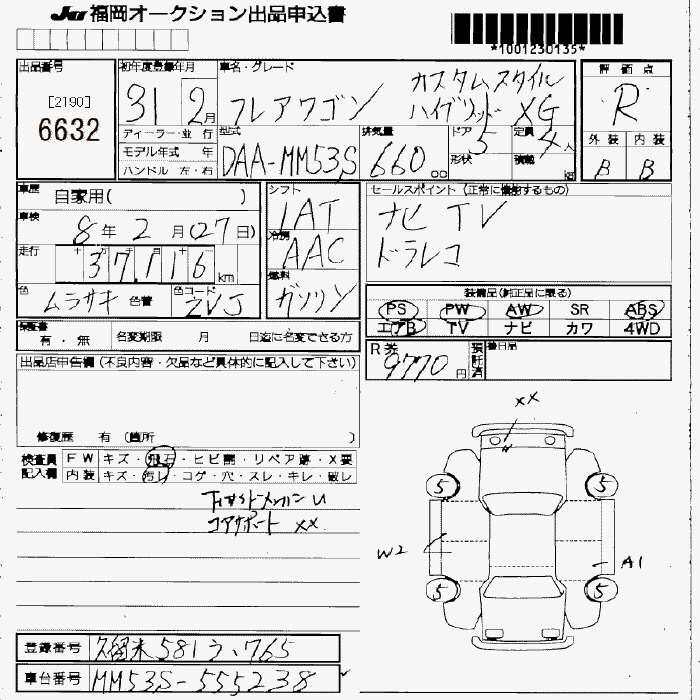 JU 福岡オークション出品申込書
*1001230135*
出品番号 [2190] 6632
初年度登録年月 31 2月
車名・グレード フレアワゴン カスタムスタイル ハイブリッド XG
評価点 R
外装 B 内装 B
ディーラー・並行
モデル年式 年
ハンドル 左・右
型式 DAA-MM53S
排気量 660 cc
ドア 5 形状
定員 4人 積載 kg
車歴 自家用( )
車検 8年 2月(27日)
走行 十 万 千 百 十 37,116 km
色 ムラサキ 色替 色コード ZVJ
シフト IAT
冷房 AAC
燃料 ガソリン
セールスポイント (正常に機能するもの)
ナビ TV
ドラレコ
装備品(純正品に限る)
PS PW AW SR ABS
エアB TV ナビ カワ 4WD
保証書 有・無 名変期限 月 日迄に名変できる方
R券 9770円 預託済 後日品
出品店申告欄 (不良内容・欠品など具体的に記入して下さい)
修復歴 有 (箇所 )
検査員記入欄 FW キズ・飛石・ヒビ割・リペア跡・X要
内装 キズ・汚レ・コゲ・穴・スレ・キレ・破レ
U
コアサポート XX
XX
5 5
W2 A1
5 5
登録番号 久留米 581 う・765
車台番号 MM53S-555238